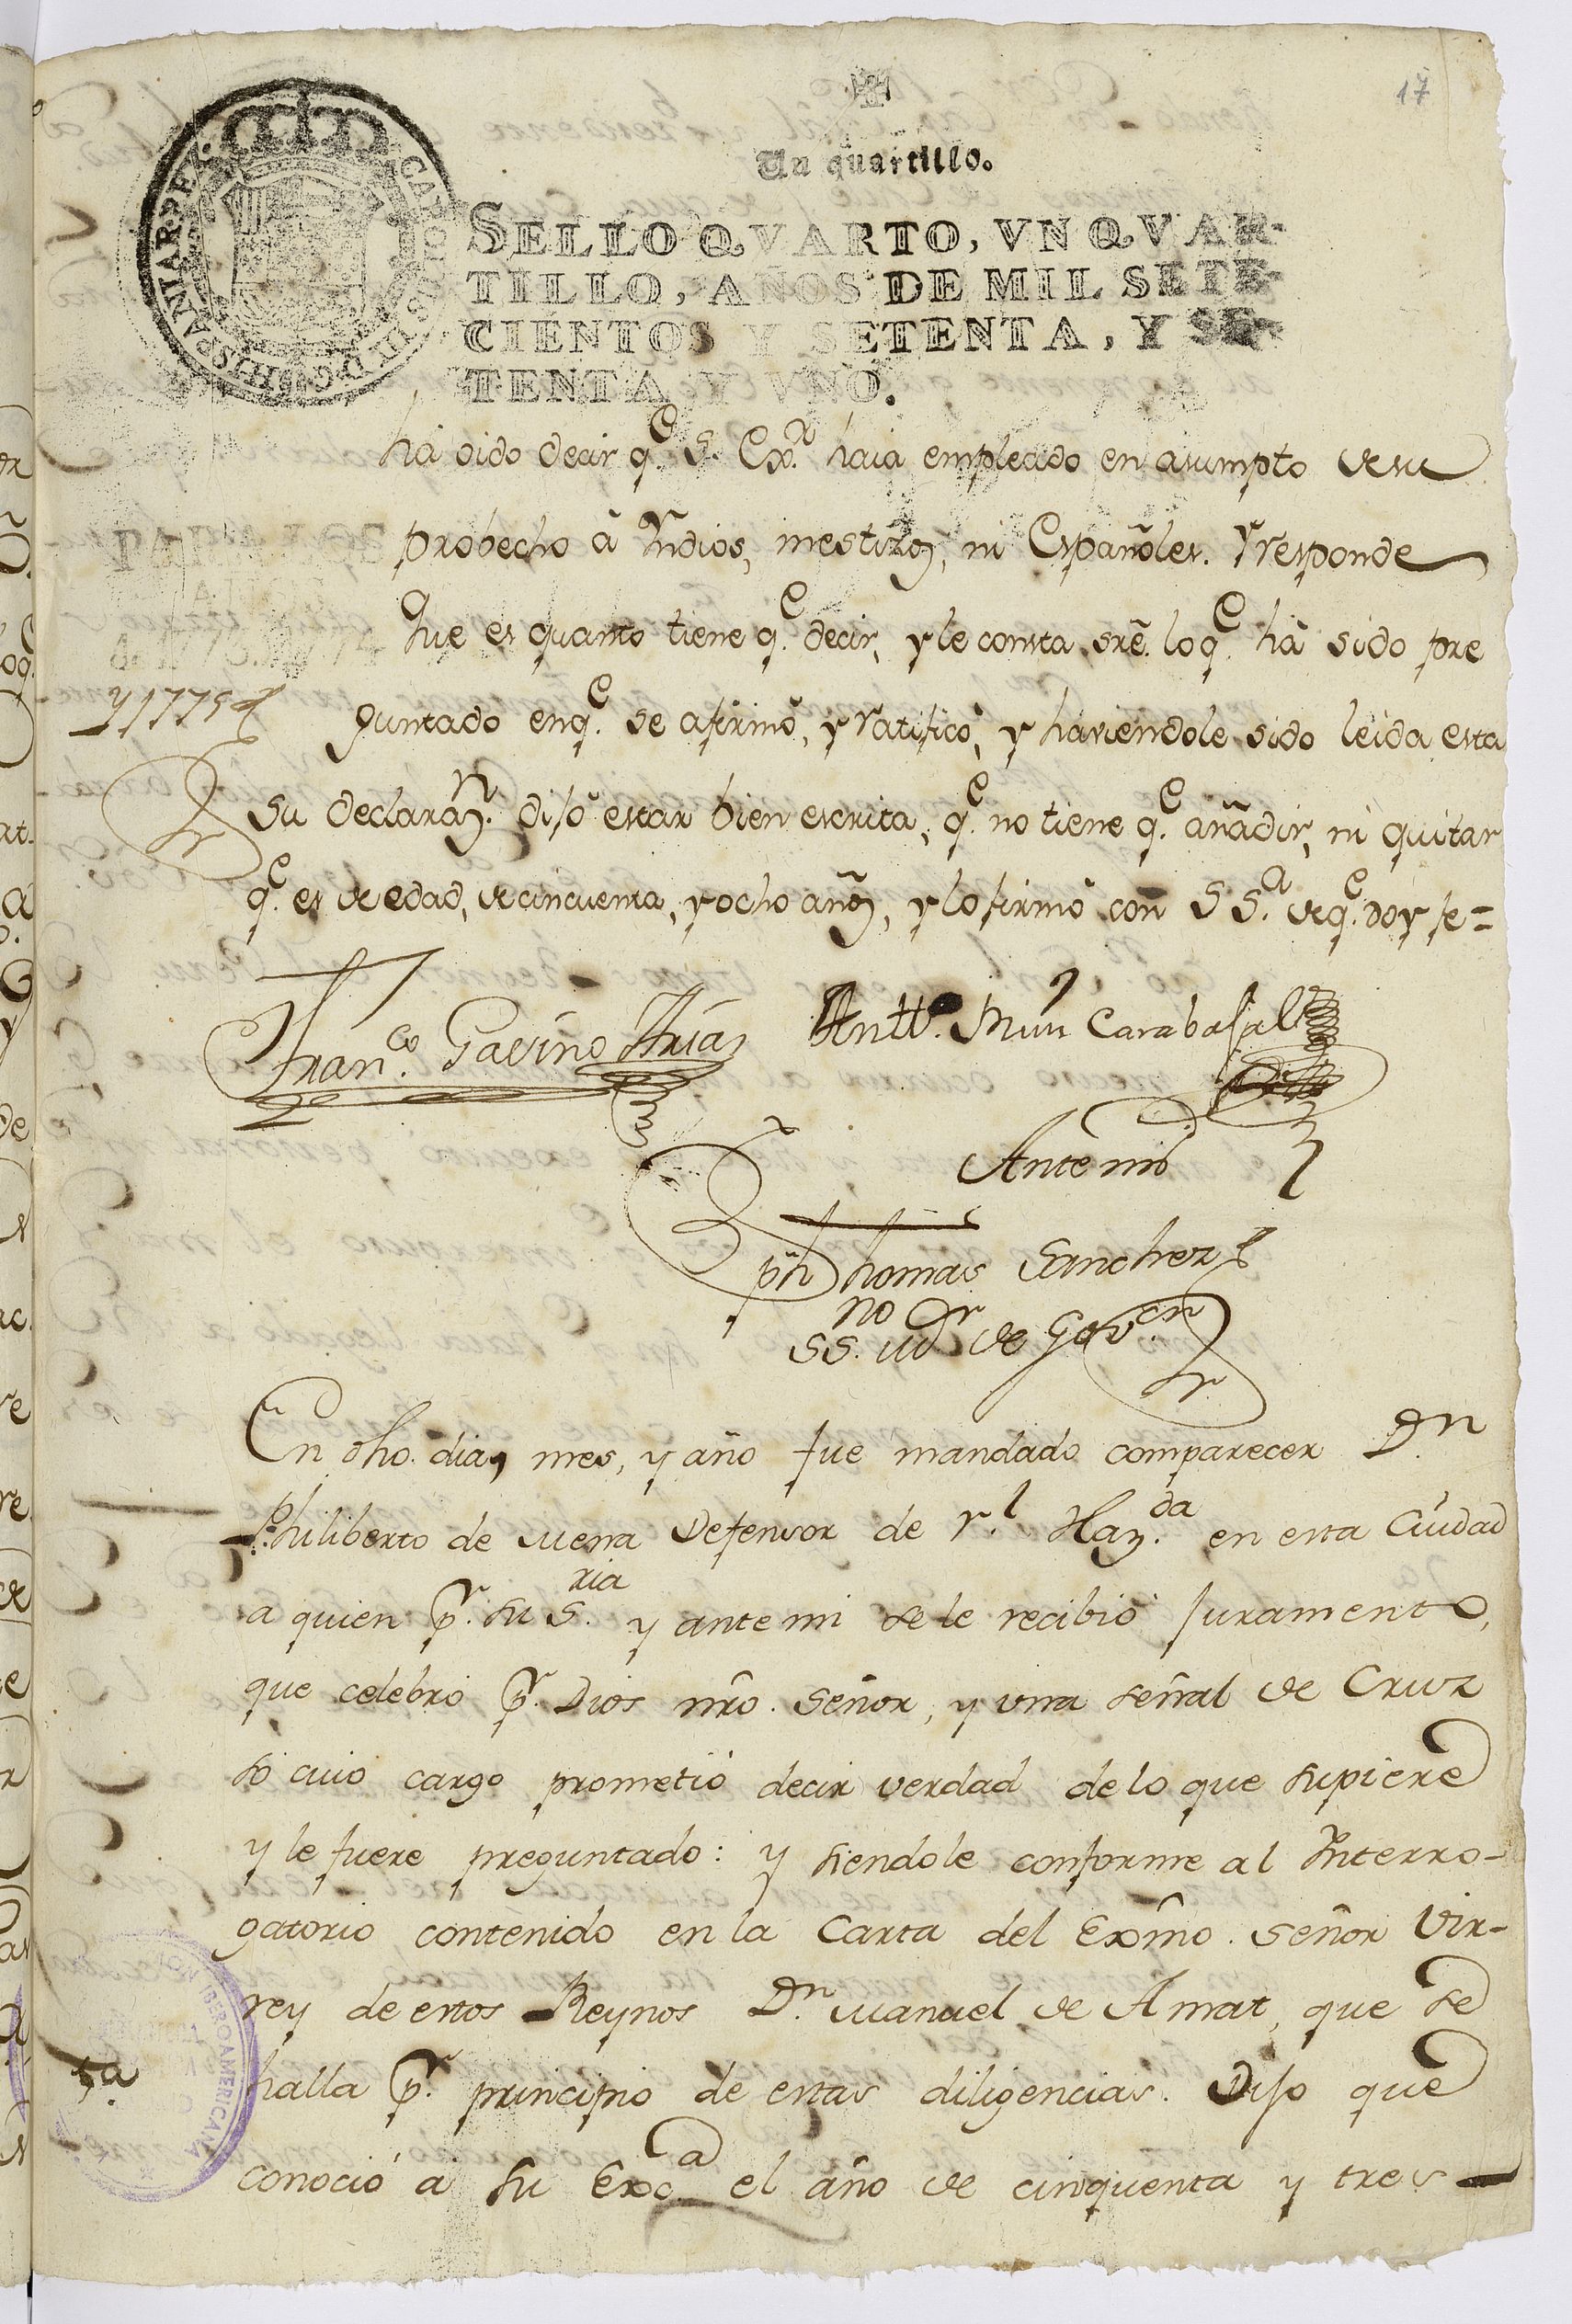 17
Un quartillo.
SELLO QVARTO, VN QVAR-
TILLO, AÑOS DE MIL SETE-
CIENTOS Y SETENTA, Y SE-
TENTA Y VNO.
há oido decir q.e S. Ex.a haia empleado en asumpto de su
probecho á Yndios, mestizos, ni Españoles. Y responde
Que es quanto tiene q.e decir, y le consta sre. lo q.e há sido pre
y 1775
guntado en q.e se afirmó, y ratificó, y haviendole sido leida esta
su declaraz.n dijo estar bien escrita, q.e no tiene q.e añadir, ni quitar
q.e es de edad, de cincuenta, y ocho años, y lo firmó con S S.a de q.e doy fe=
Fran.co Gavino Arias
Antt.o Carabajal
Ante mi
Thomas Sanchez
SS.no de Gov.en
En dho. dia, mes, y año fue mandado comparecer D.n
Philiberto de Mena Defensor de r.l Haz.da en esta Ciudad
a quien p.r su S.ria y ante mi se le recibió juramento,
que celebró p.r Dios nro. Señor, y una señal de Cruz
so cuio cargo prometió decir verdad de lo que supiere
y le fuere preguntado: y siendole conforme al Interro-
gatorio contenido en la Carta del Exmo. Señor Vir-
rey de estos Reynos D.n Manuel de Amat, que se
5.a halla p.r principio de estas diligencias. Dijo que
conoció a su Exc.a el año de cinquenta y tres